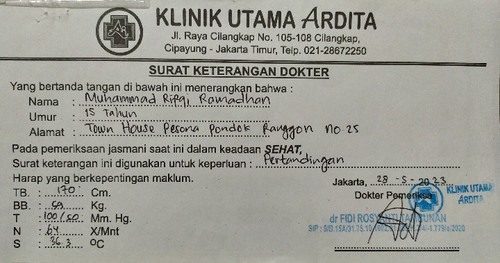 KLINIK UTAMA ARDITA
Jl. Raya Cilangkap No. 105-108 Cilangkap,
Cipayung - Jakarta Timur, Telp. 021-28672250
SURAT KETERANGAN DOKTER
Yang bertanda tangan di bawah ini menerangkan bahwa :
Nama : Muhammad Rifqi Ramadhan
Umur : 15 Tahun
Alamat : Town House Pesona Pondok Ranggon no 25
Pada pemeriksaan jasmani saat ini dalam keadaan SEHAT,
Surat keterangan ini digunakan untuk keperluan : Pertandingan
Harap yang berkepentingan maklum.
Jakarta, 28 - 5 - 2023
TB. : 170 Cm.
Dokter Pemeriksa
KLINIK UTAMA
ARDITA
BB. : Kg.
T : 100/60 Mm. Hg.
N : 64 X/Mnt
dr FIDI
S : 36.3 °C